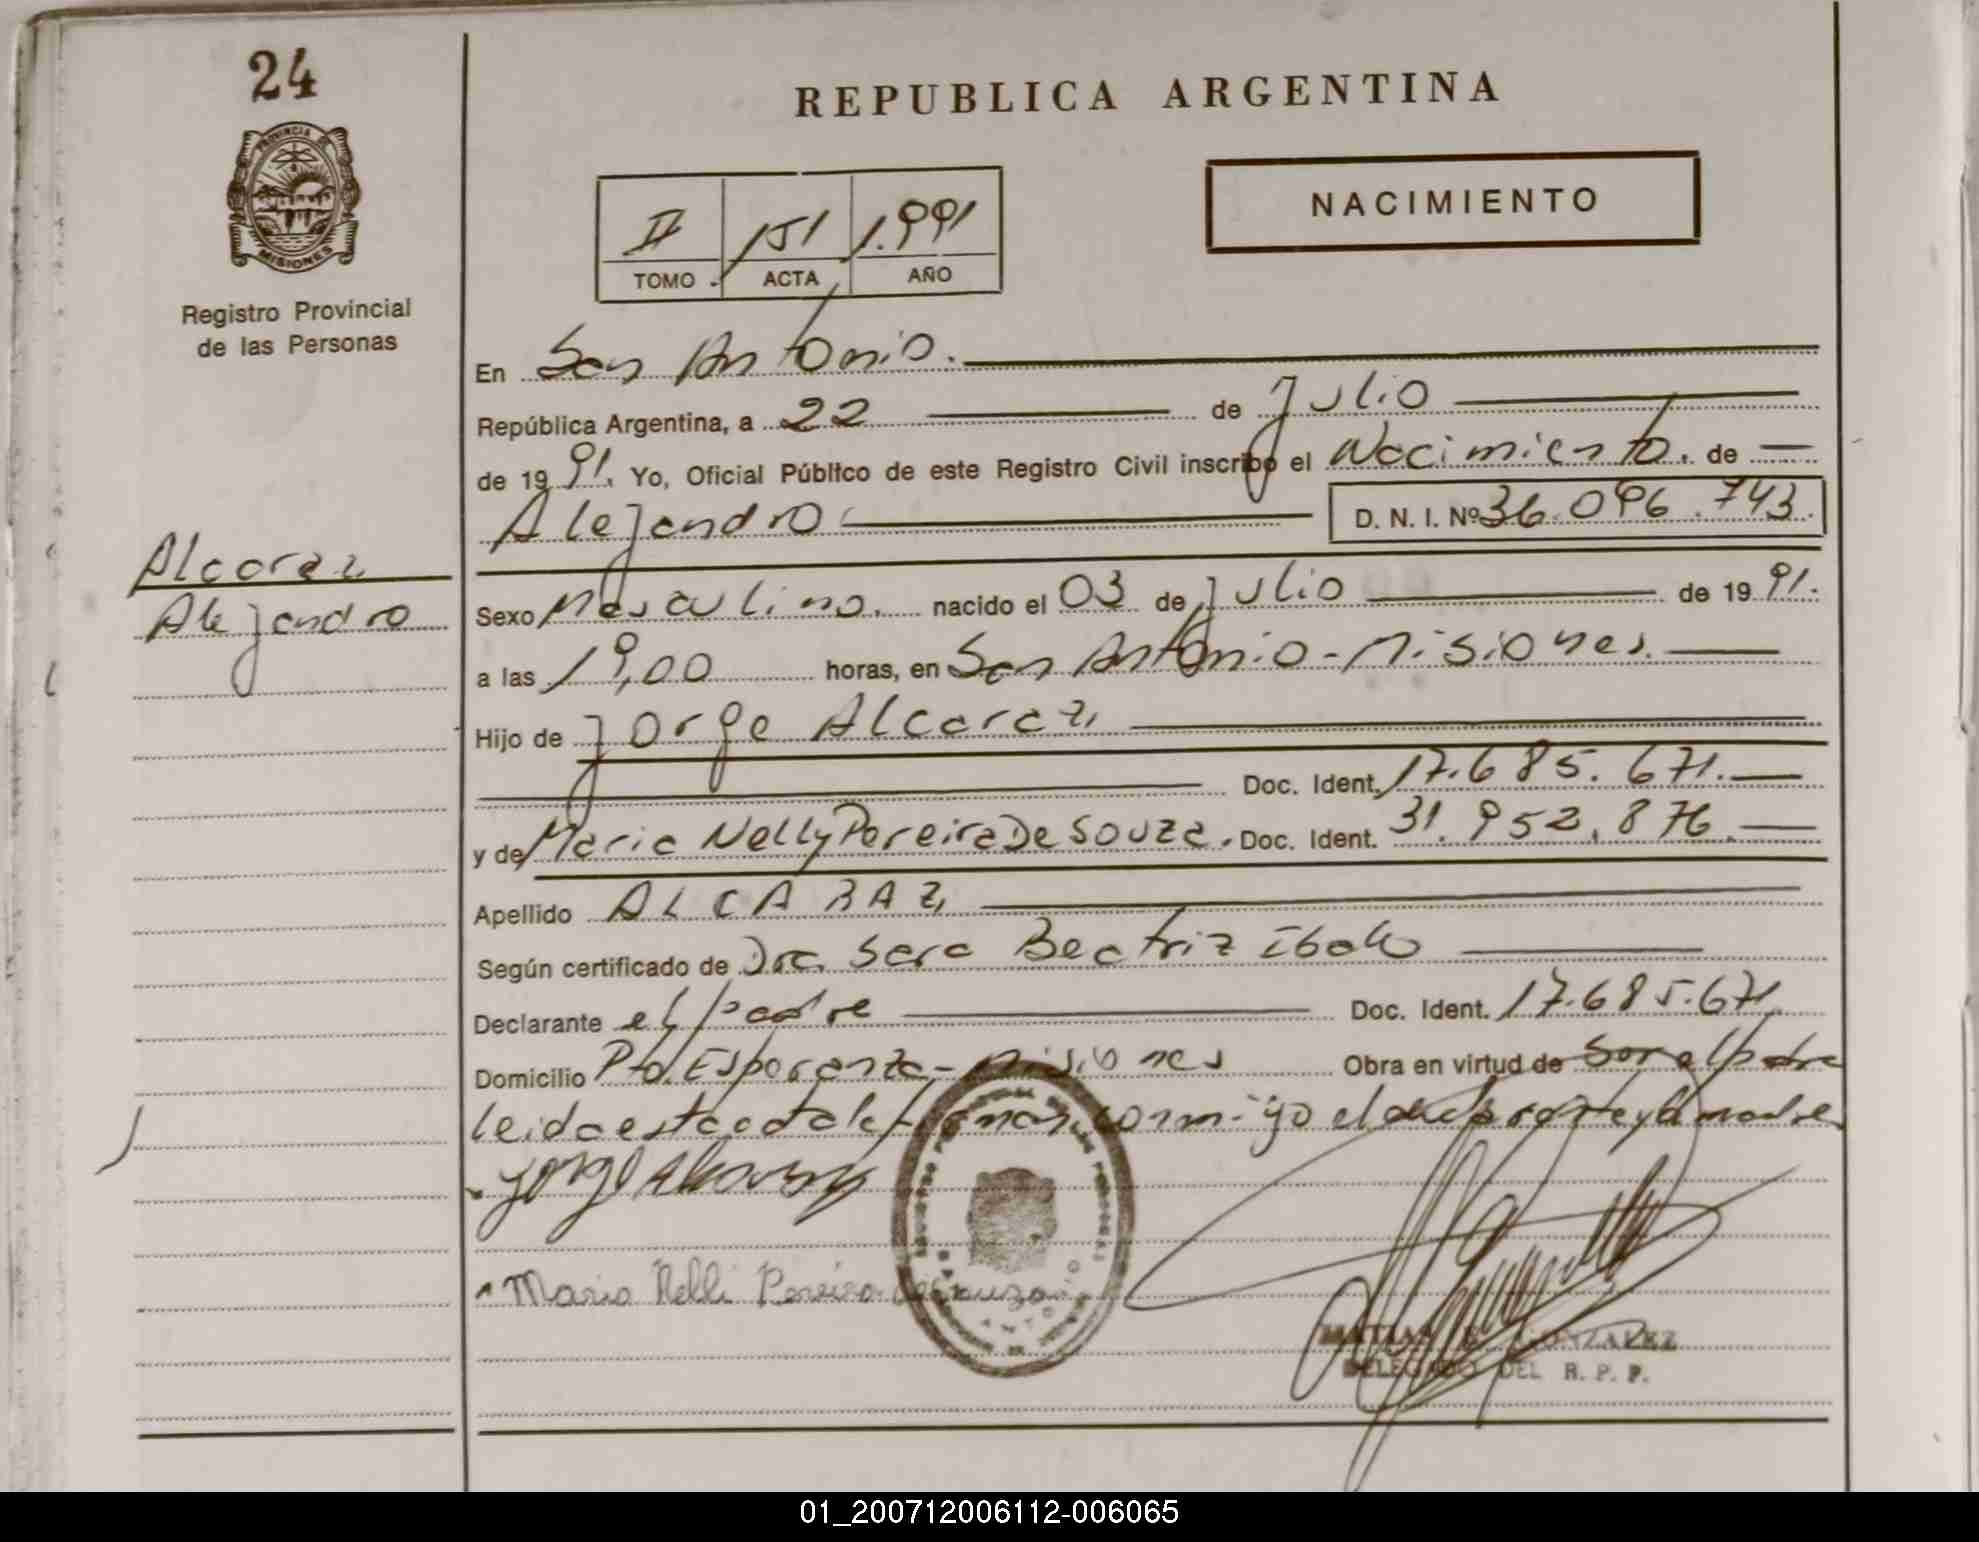 24
PROVINCIA DE
MISIONES
Registro Provincial
de las Personas
Alcaraz
Alejandro
REPUBLICA ARGENTINA
II 151 1.991
TOMO ACTA AÑO
NACIMIENTO
En San Antonio.
República Argentina, a 22 de Julio
de 1991. Yo, Oficial Público de este Registro Civil inscribo el Nacimiento. de
Alejandro D. N. I. Nº 36.096.743.
Sexo Masculino. nacido el 03 de Julio de 1991.
a las 19,00 horas, en San Antonio - Misiones.
Hijo de Jorge Alcaraz
Doc. Ident. 17.685.671.
y de Maria Nelly Pereira De Souza. Doc. Ident. 31.952.876.
Apellido ALCARAZ
Según certificado de Dra. Sara Beatriz
Declarante el padre Doc. Ident. 17.685.671
Domicilio Pto. Esperanza - Misiones Obra en virtud de Ser el padre
leida esta acta la firman conmigo el declarante y la madre
Jorge Alcaraz
Maria Nelli Pereira de souza
MATIAS GONZALEZ
DELEGADO DEL R. P. P.
01_200712006112-006065